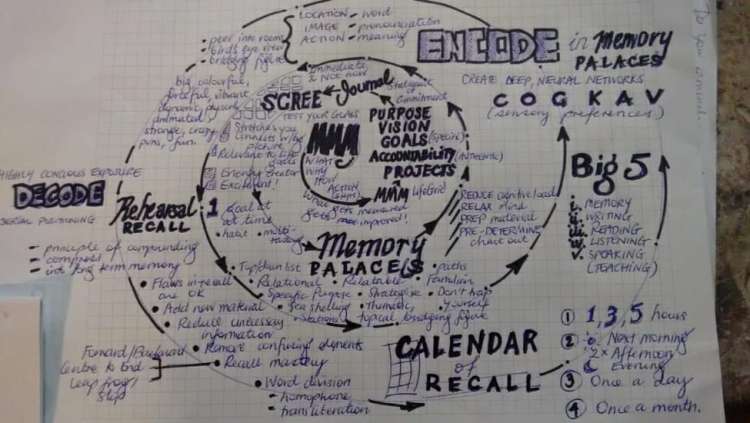 LOCATION - word
IMAGE - pronounciation
ACTION - meaning
• peer into room
• birds eye view
• bridging figure
big, colourful,
vibrant
animated
strange, crazy
puns, fun.
ENCODE in Memory
PALACES
CREATE DEEP, NEURAL NETWORKS
COGKAV
(sensory preferences)
To your
Immediate
& Not now
SCREE
Journal
Statement
of
Commitment
TEST your GOALS
Stretches you
Connects w/ big
picture
Relevance to life
goals
Energy creator
Excitement!
MMM
WHAT
WHY
HOW
ACTION
PURPOSE
VISION
GOALS (SPECIFIC)
ACCOUNTABILITY
PROJECTS
MMM
What gets measured
gets improved!
1 Goal at
at time
• habit
• multi-
tasking
HIGHLY CONCIOUS EXPOSURE
DECODE
SERIAL POSITIONING
- principle of compounding
- compress
- into long term memory
Rehearsal
RECALL
Memory
PALACES
REDUCE cognitive load
RELAX mind
PREP material
PRE-DETERMINE
chart out
Big 5
i. MEMORY
ii. WRITING
iii. READING
iv. LISTENING
v. SPEAKING
(TEACHING)
• Top/down list
• Relational
• Relatable
• paths
• Familiar
• Specific Purpose
• Strategise
• Don't trap
yourself
• Sea shelling
• Thematic,
topical
bridging figure
• Flaws in recall
are OK
• Add new material
• Reduce unnecessary
information
• Remove confusing elements
• Recall mastery
Forward/Backward
Centre to End
Leap frog/
Skip
• Word division
- homophone
- transliteration
CALENDAR
of
RECALL
① 1, 3, 5 hours
② Next morning
2x Afternoon
Evening
③ Once a day
④ Once a month.